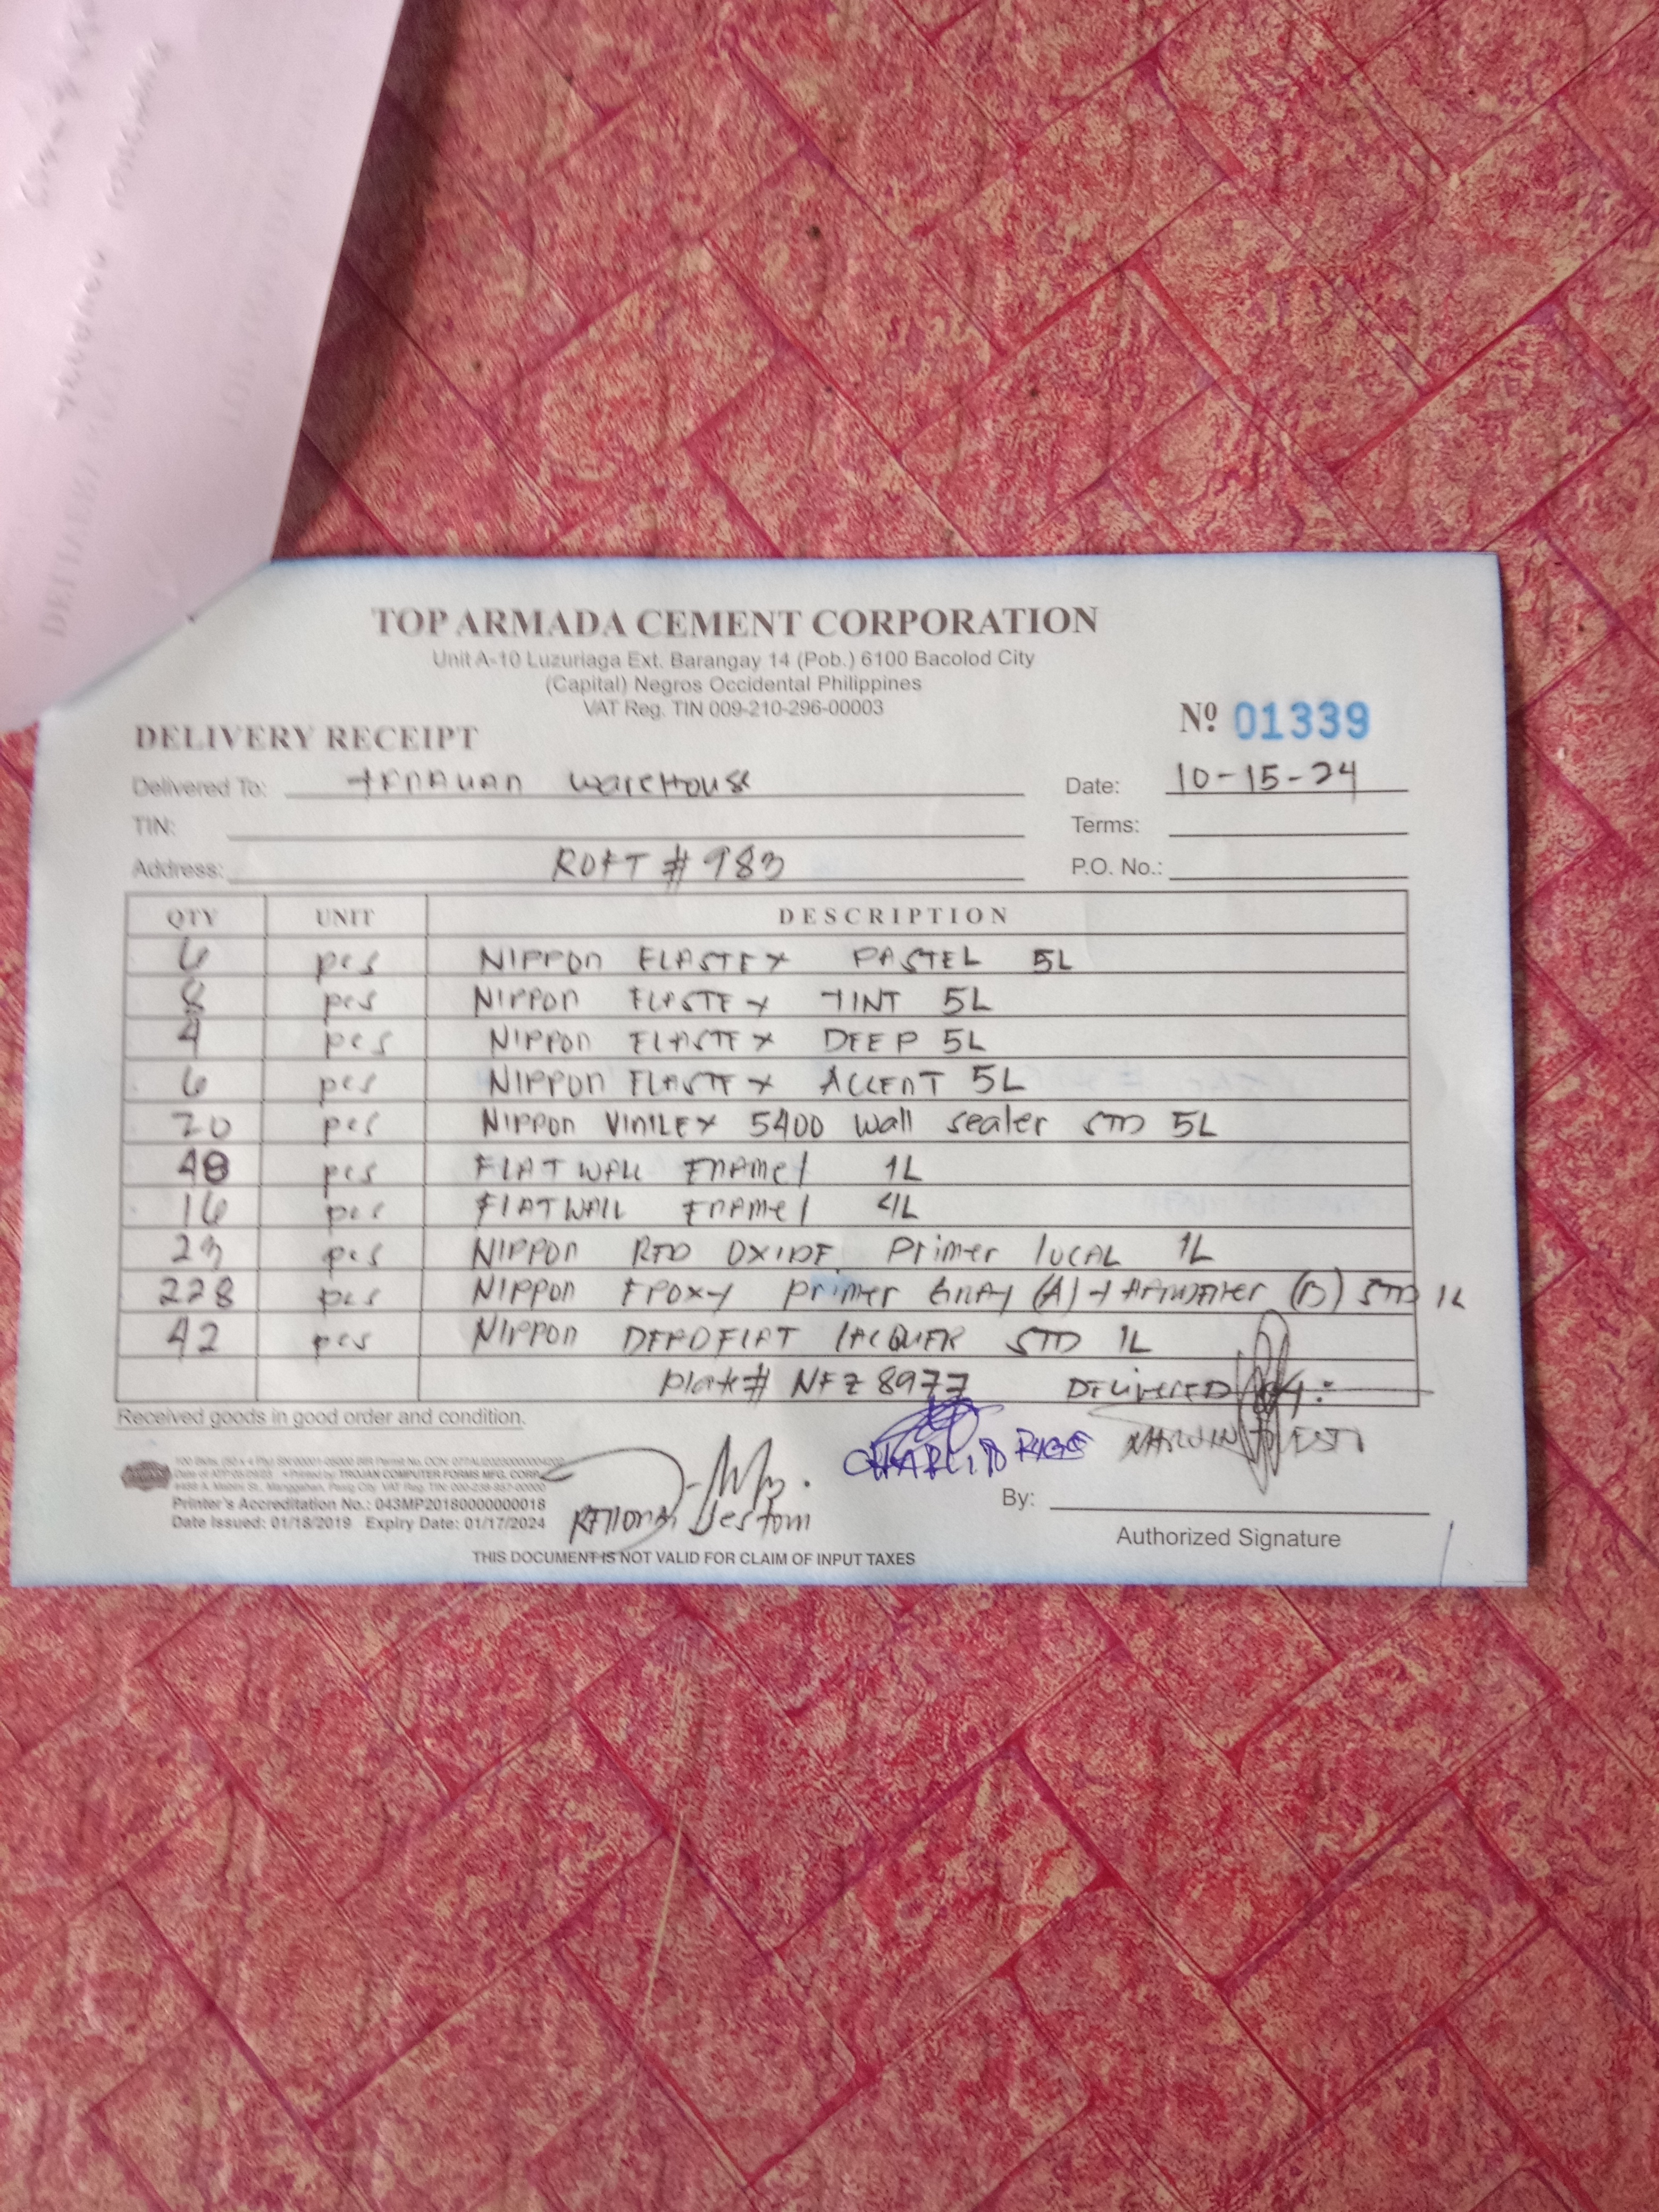 TOP ARMADA CEMENT CORPORATION
Unit A-10 Luzuriaga Ext. Barangay 14 (Pob.) 6100 Bacolod City
(Capital) Negros Occidental Philippines
VAT Reg. TIN 009-210-296-00003
Nº 01339
DELIVERY RECEIPT
Delivered To: warehouse Date: 10-15-24
TIN: Terms:
Address: ROFT # 983 P.O. No.:
QTY UNIT DESCRIPTION
6 pcs NIPPON ELASTEX PASTEL 5L
8 pcs NIPPON ELASTEX TINT 5L
4 pcs NIPPON ELASTEX DEEP 5L
6 pcs NIPPON ELASTEX ACCENT 5L
20 pcs NIPPON VINILEX 5400 wall sealer STD 5L
48 pcs FLATWALL ENAMEl 1L
16 pcs FlATWAll ENAMEl 4L
23 pcs NIPPON RED OXIDE Primer lOCAL 1L
228 pcs NIPPON EPOXY Primer GRAY (A) + (B) STD 1L
42 pcs NIPPON DEADFLAT lACQUER STD 1L
plate# NFZ 8977 DELIVERED BY:
Received goods in good order and condition.
Printed by: TROJAN COMPUTER FORMS MFG. CORP.
Printer's Accreditation No.: 043MP20180000000018
Date Issued: 01/18/2019 Expiry Date: 01/17/2024
Jestoni
By:
Authorized Signature
THIS DOCUMENT IS NOT VALID FOR CLAIM OF INPUT TAXES